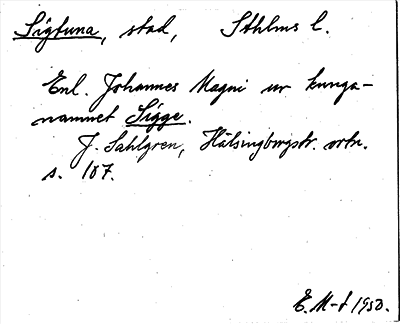 Sigtuna, stad, Sthlms l.
Enl. Johannes Magni ur kunga-
namnet Sigge.
J. Sahlgren, Hälsingborgstr. ortn.
s. 107.
E. M-t 1950.